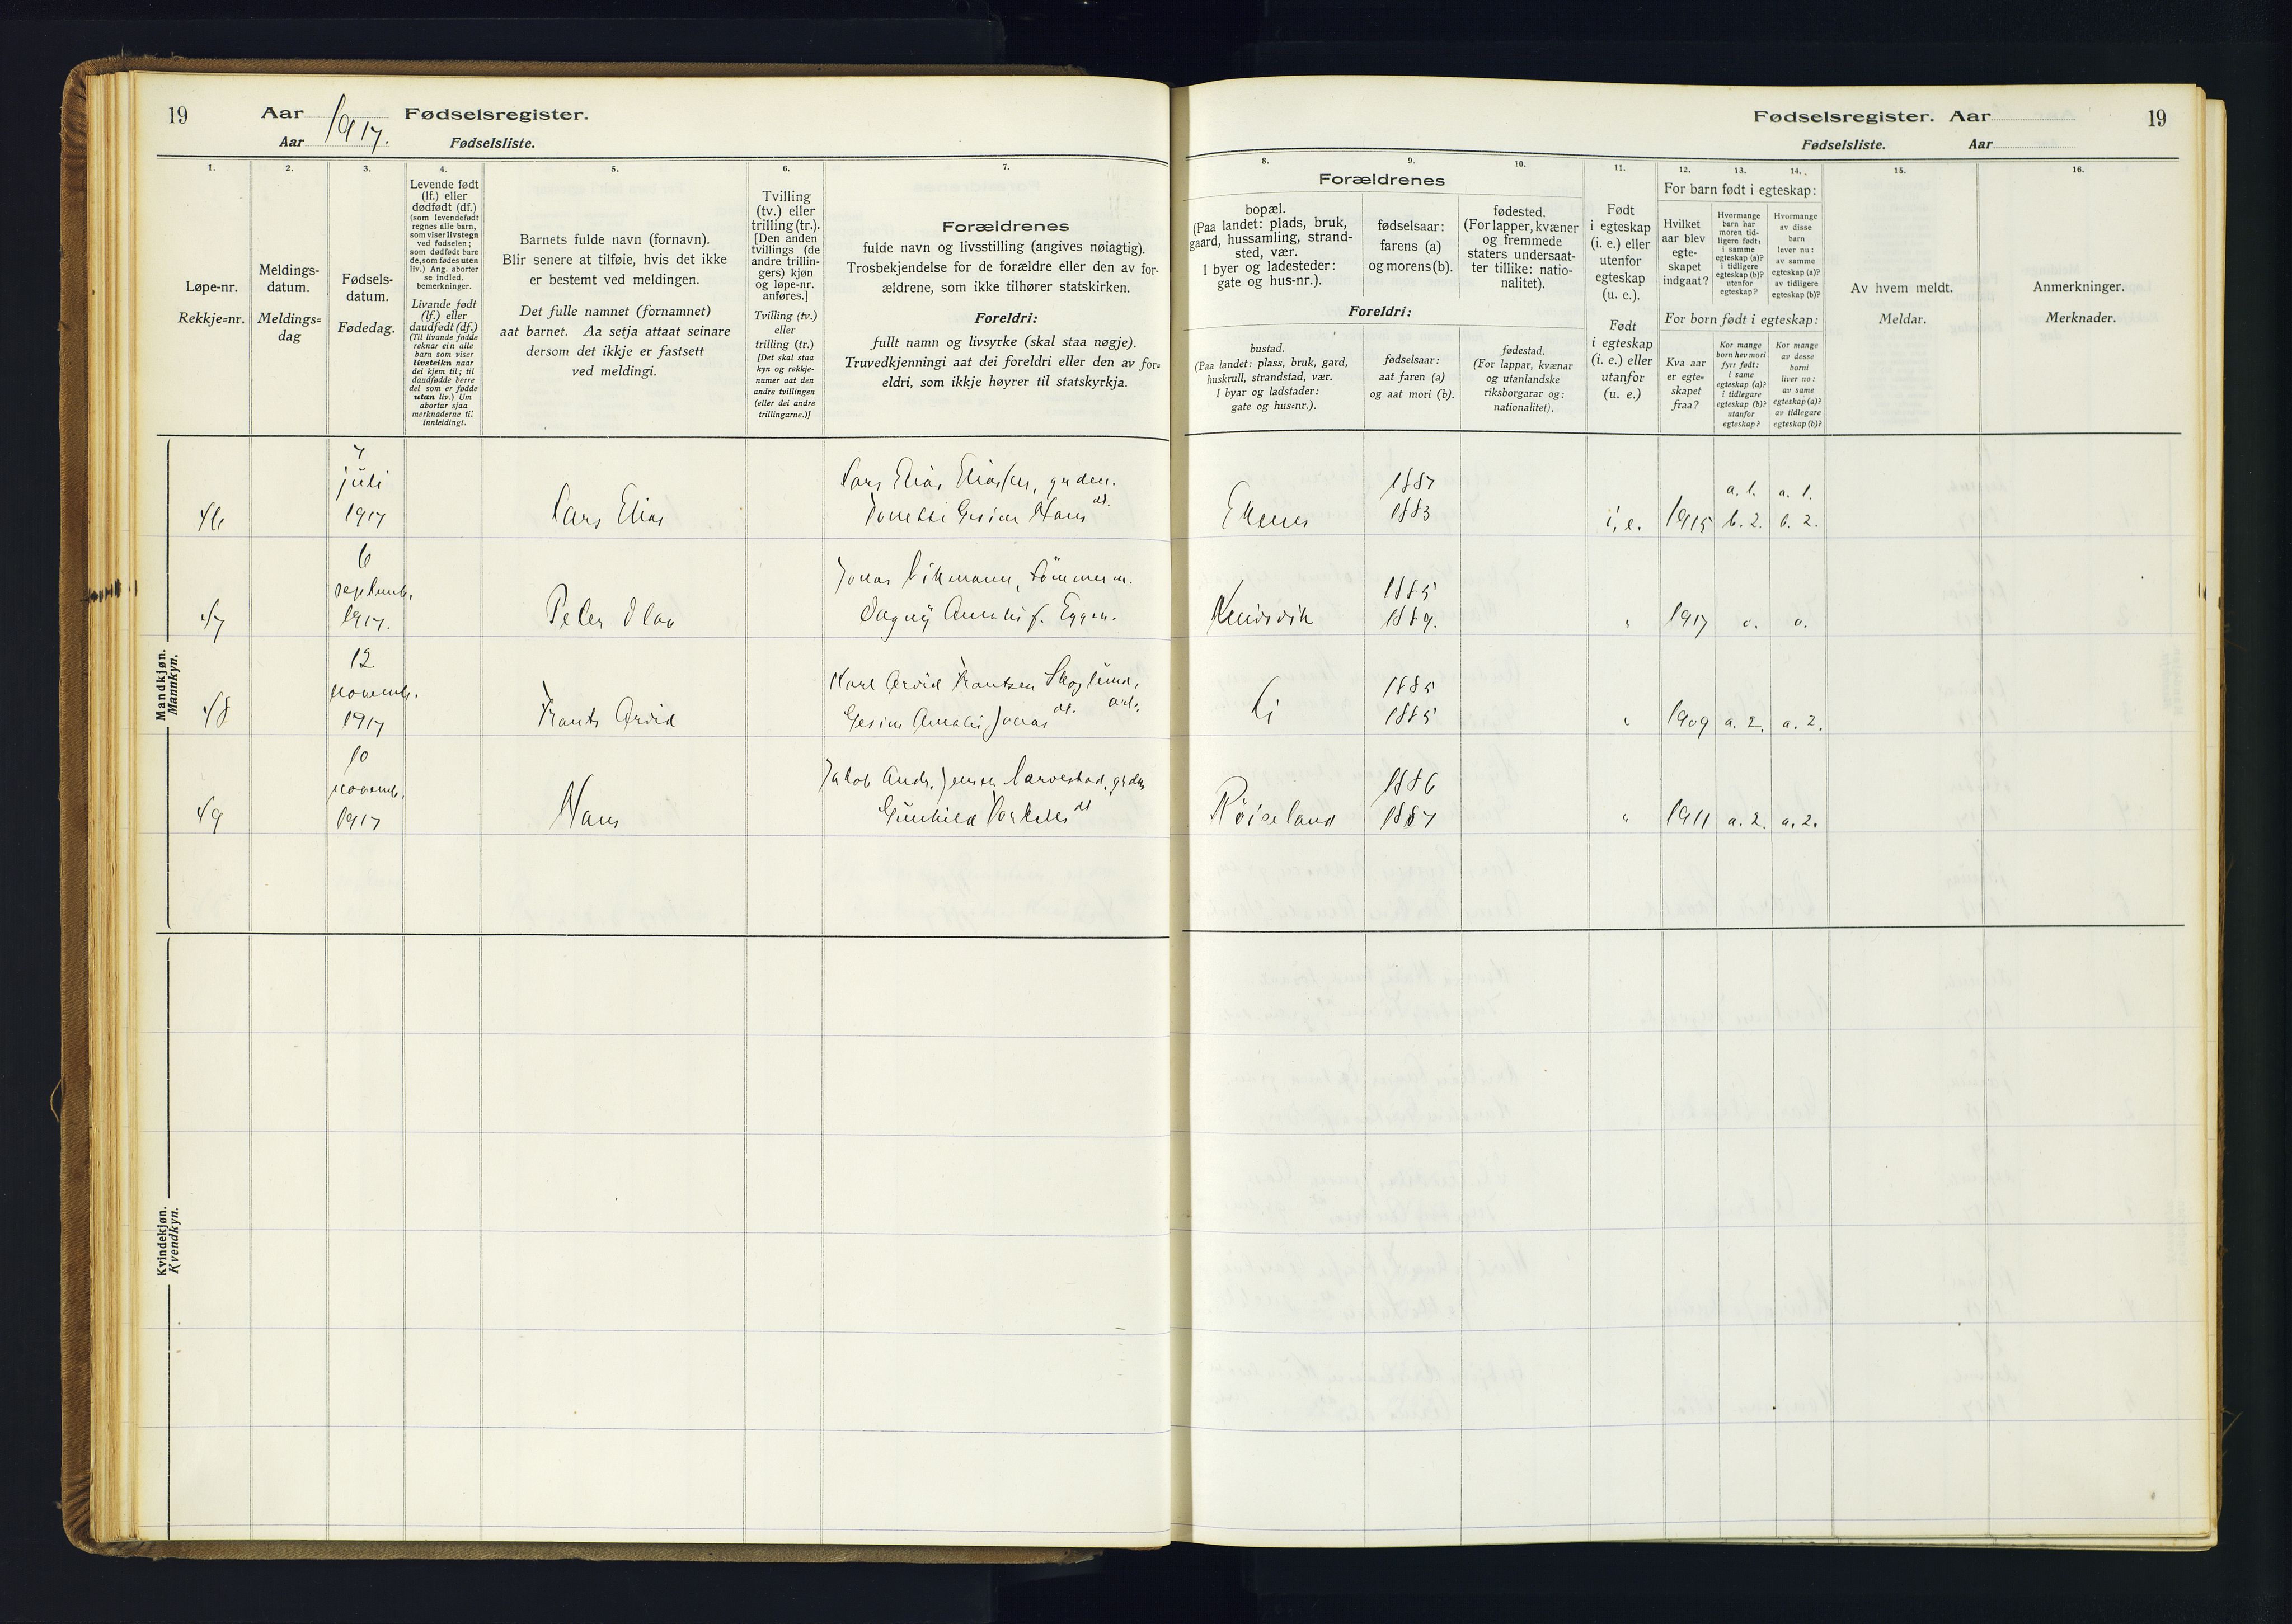 19 Aar 1917. Fødselsregister.
Aar Fødselsliste.
Fødselsregister. Aar 19
Fødselsliste. Aar
1. 2. 3. 4. 5. 6. 7.
Løpe-nr.
Rekkje=nr.
Meldings-
datum.
Meldings=
dag
Fødsels-
datum.
Fødedag.
Levende født
(lf.) eller
dødfødt (df.)
(som levendefødt
regnes alle barn,
som viser livstegn
ved fødselen;
som dødfødt bare
de, som fødes uten
liv.) Ang. aborter
se indled.
bemerkninger.
Livande født
(lf.) eller
daudfødt (df.)
(Til livande fødde
reknar ein alle
barn som viser
livsteikn naar
dei kjem til; til
daudfødde berre
dei som er fødde
utan liv.) Um
abortar sjaa
merknaderne til
innleidingi.
Barnets fulde navn (fornavn).
Blir senere at tilføie, hvis det ikke
er bestemt ved meldingen.
Det fulle namnet (fornamnet)
aat barnet. Aa setja attaat seinare
dersom det ikkje er fastsett
ved meldingi.
Tvilling
(tv.) eller
trilling (tr.).
[Den anden
tvillings (de
andre trillin-
gers) kjøn
og løpe-nr.
anføres.]
Tvilling (tv.)
eller
trilling (tr.)
[Det skal staa
kyn og rekkje-
numer aat den
andre tvillingen
(eller dei andre
trillingarne.)]
Forældrenes
fulde navn og livsstilling (angives nøiagtig).
Trosbekjendelse for de forældre eller den av for-
ældrene, som ikke tilhører statskirken.
Foreldri:
fullt namn og livsyrke (skal staa nøgje).
Truvedkjenningi aat dei foreldri eller den av for=
eldri, som ikkje høyrer til statskyrkja.
8. 9. 10. 11. 12. 13. 14. 15. 16.
Forældrenes
bopæl.
(Paa landet: plads, bruk,
gaard, hussamling, strand-
sted, vær.
I byer og ladesteder:
gate og hus-nr.).
fødselsaar:
farens (a)
og morens (b).
fødested.
(For lapper, kvæner
og fremmede
staters undersaat-
ter tillike: natio-
nalitet).
Foreldri:
bustad.
(Paa landet: plass, bruk, gard,
huskrull, strandstad, vær.
I byar og ladstader:
gate og hus=nr.).
fødselsaar:
aat faren (a)
og aat mori (b).
fødestad.
(For lappar, kvænar
og utanlandske
riksborgarar og:
nationalitet).
Født
i egteskap
(i. e.) eller
utenfor
egteskap
(u. e.).
Født
i egteskap
(i. e.) eller
utanfor
(u. e.)
For barn født i egteskap:
Hvilket
aar blev
egte-
skapet
indgaat?
Hvormange
barn har
moren tid-
ligere født:
i samme
egteskap (a)?
i tidligere
egteskap (b)?
utenfor
egteskap?
Hvormange
av disse
barn
lever nu:
av samme
egteskap (a)?
av tidligere
egteskap (b)?
For born født i egteskap:
Kva aar
er egte=
skapet
fraa?
Kor mange
born hev mori
fyrr født:
i same
egteskap (a)?
i tidlegare
egteskap (b)?
utanfor
egteskap?
Kor mange
av desse
borni
liver no:
av same
egteskap (a)?
av tidlegare
egteskap (b)?
Av hvem meldt.
Meldar.
Anmerkninger.
Merknader.
Mandkjøn.
Mannkyn.
7
juli
1917
46 Lars Elias
Lars Elias Eliassen, grdm.
Gesine Hans dt.
1887
1883
i. e. 1915
a. 1. a. 1.
b. 2. b. 2.
6
septemb.
1917.
47 Peter Olav
Jonas Vikmann, tømmerm.
Dagny Amalie f. Eggen.
1885
1889.
" 1917 o. o.
12
novemb.
1917
48 Frants Arvid
Karl Arvid Frantzen Skoglund, arb.
Gesine Amalie Jonas dt.
Li
1885
1885
" 1909 a. 2. a. 2.
10
novemb.
1917
49 Hans
Jakob Andr. Jensen grdm
Gunhild Torkels dt
Röiseland
1886
1887
" 1911 a. 2. a. 2.
Kvindekjøn.
Kvendkyn.